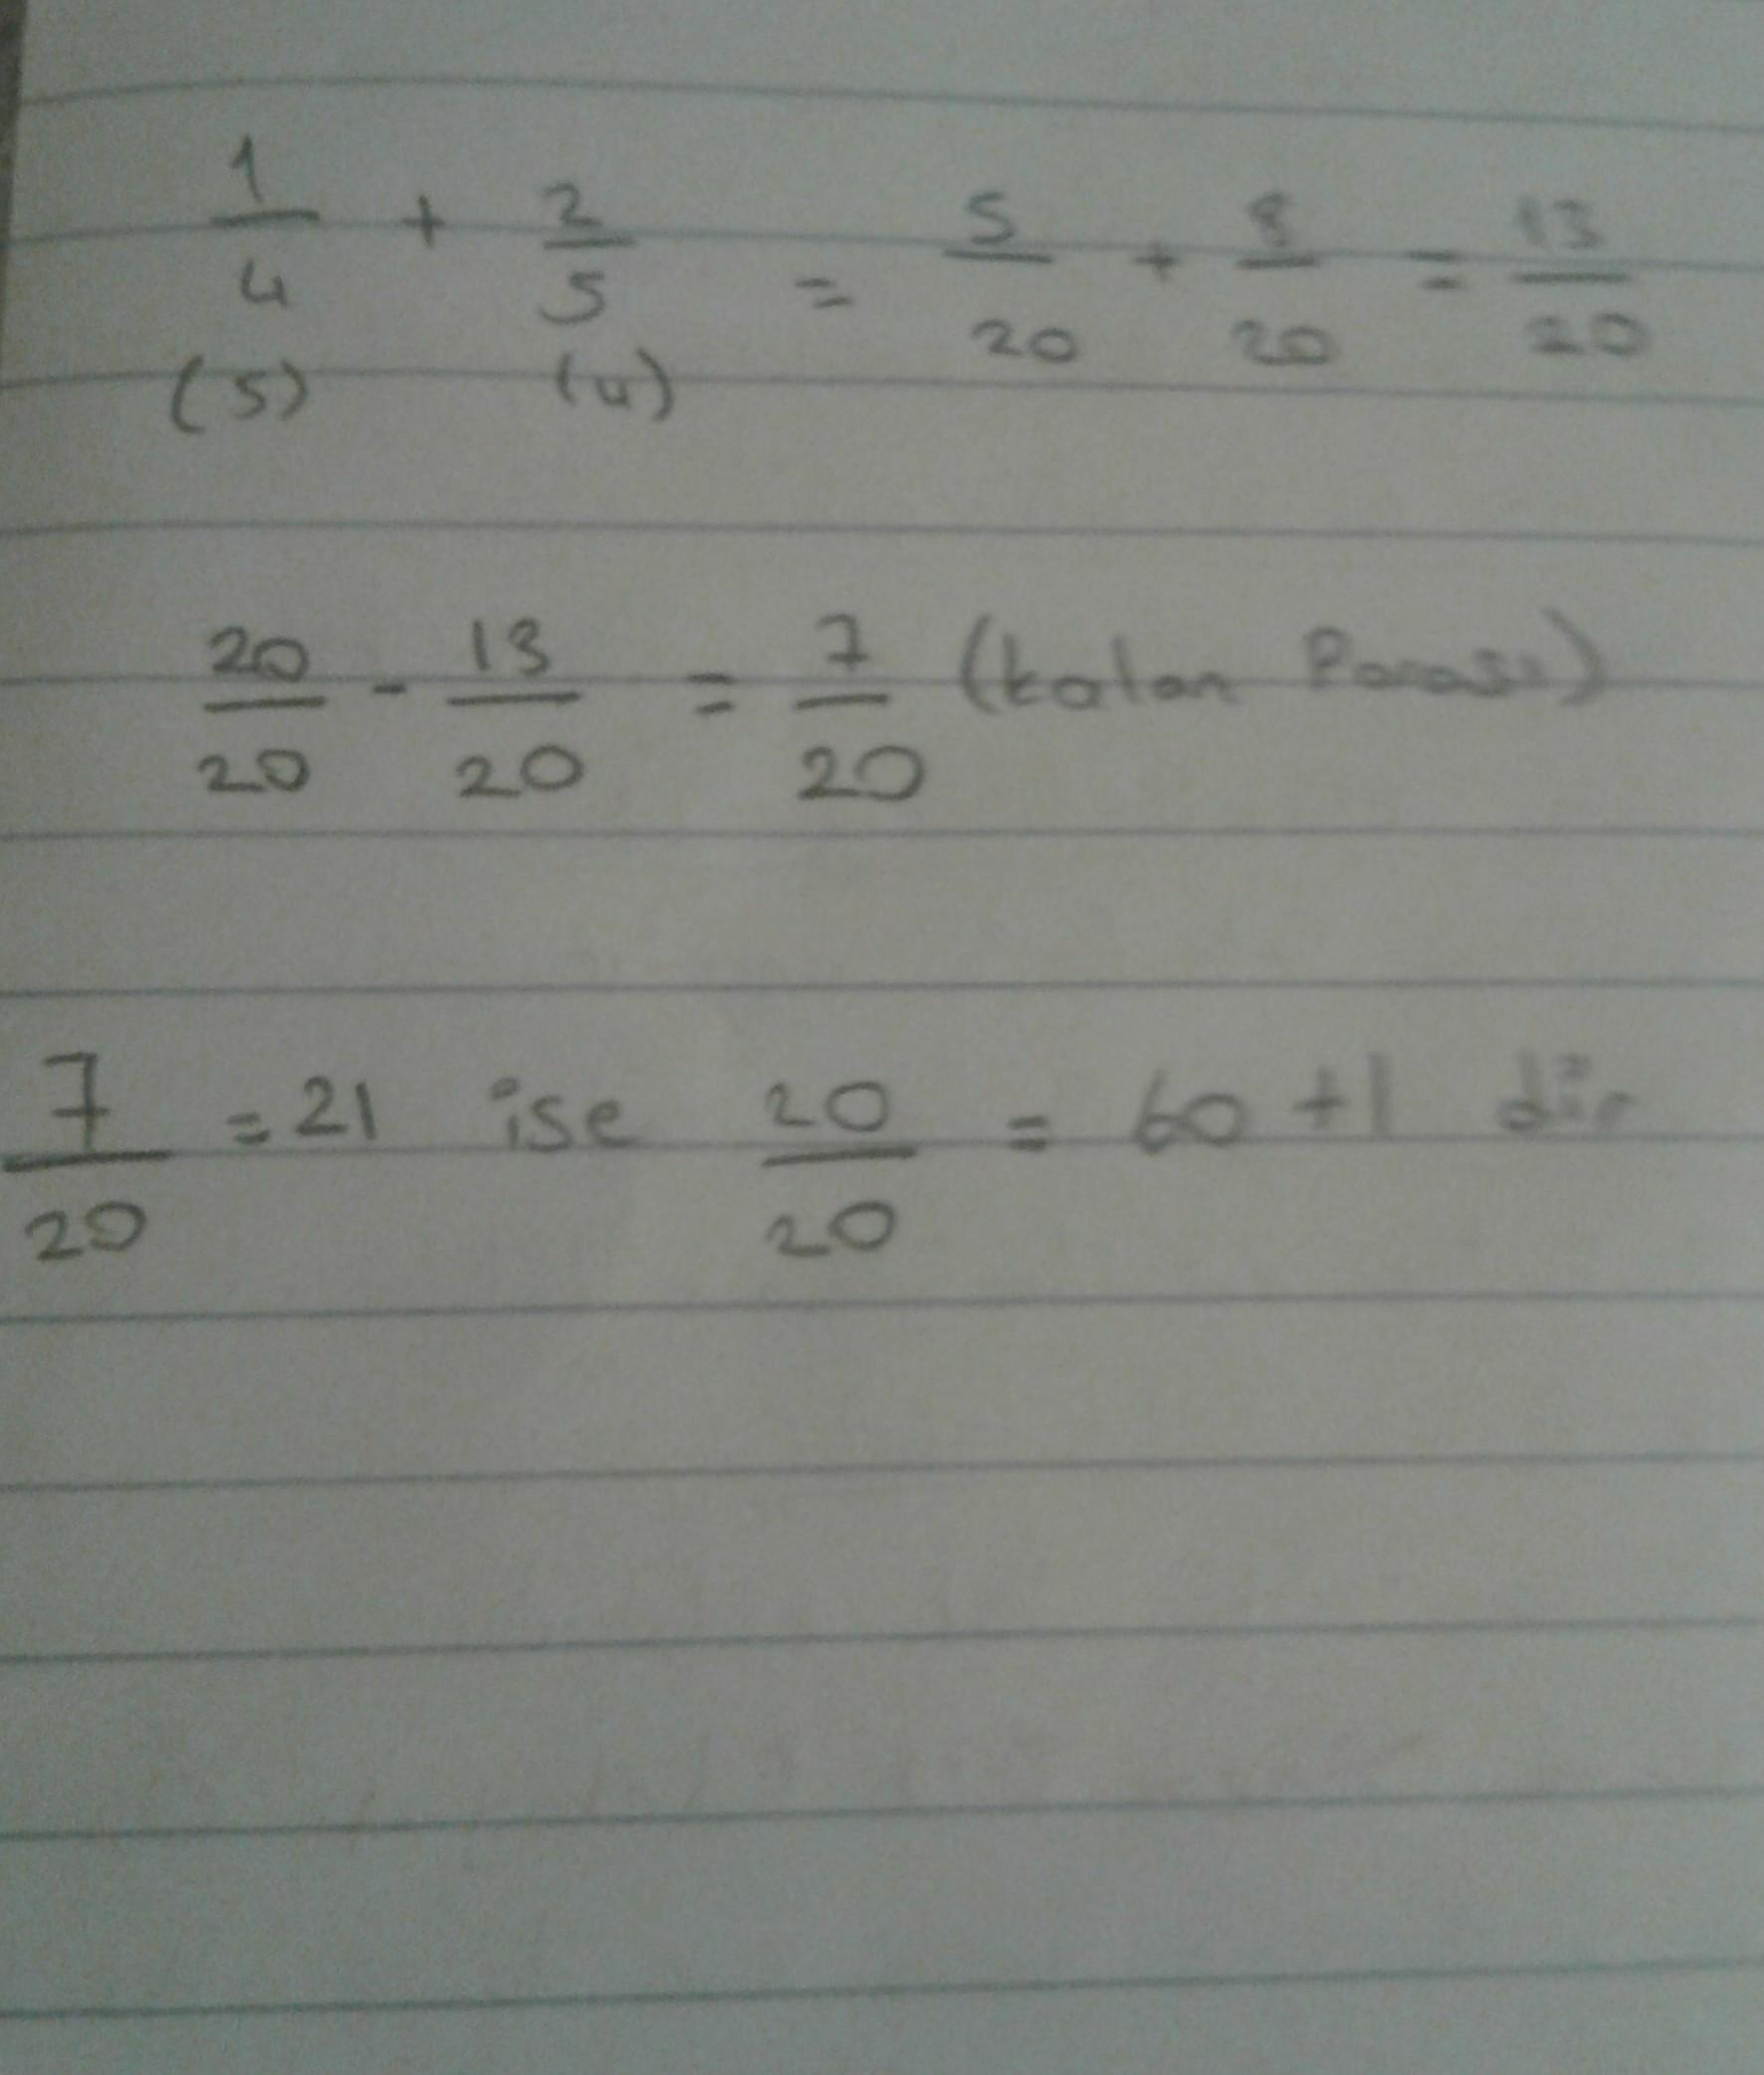 1/4 + 2/5 = 5/20 + 8/20 = 13/20
(5) (4)
20/20 - 13/20 = 7/20 (kalan Parası)
7/20 = 21 ise 20/20 = 60 tl dir